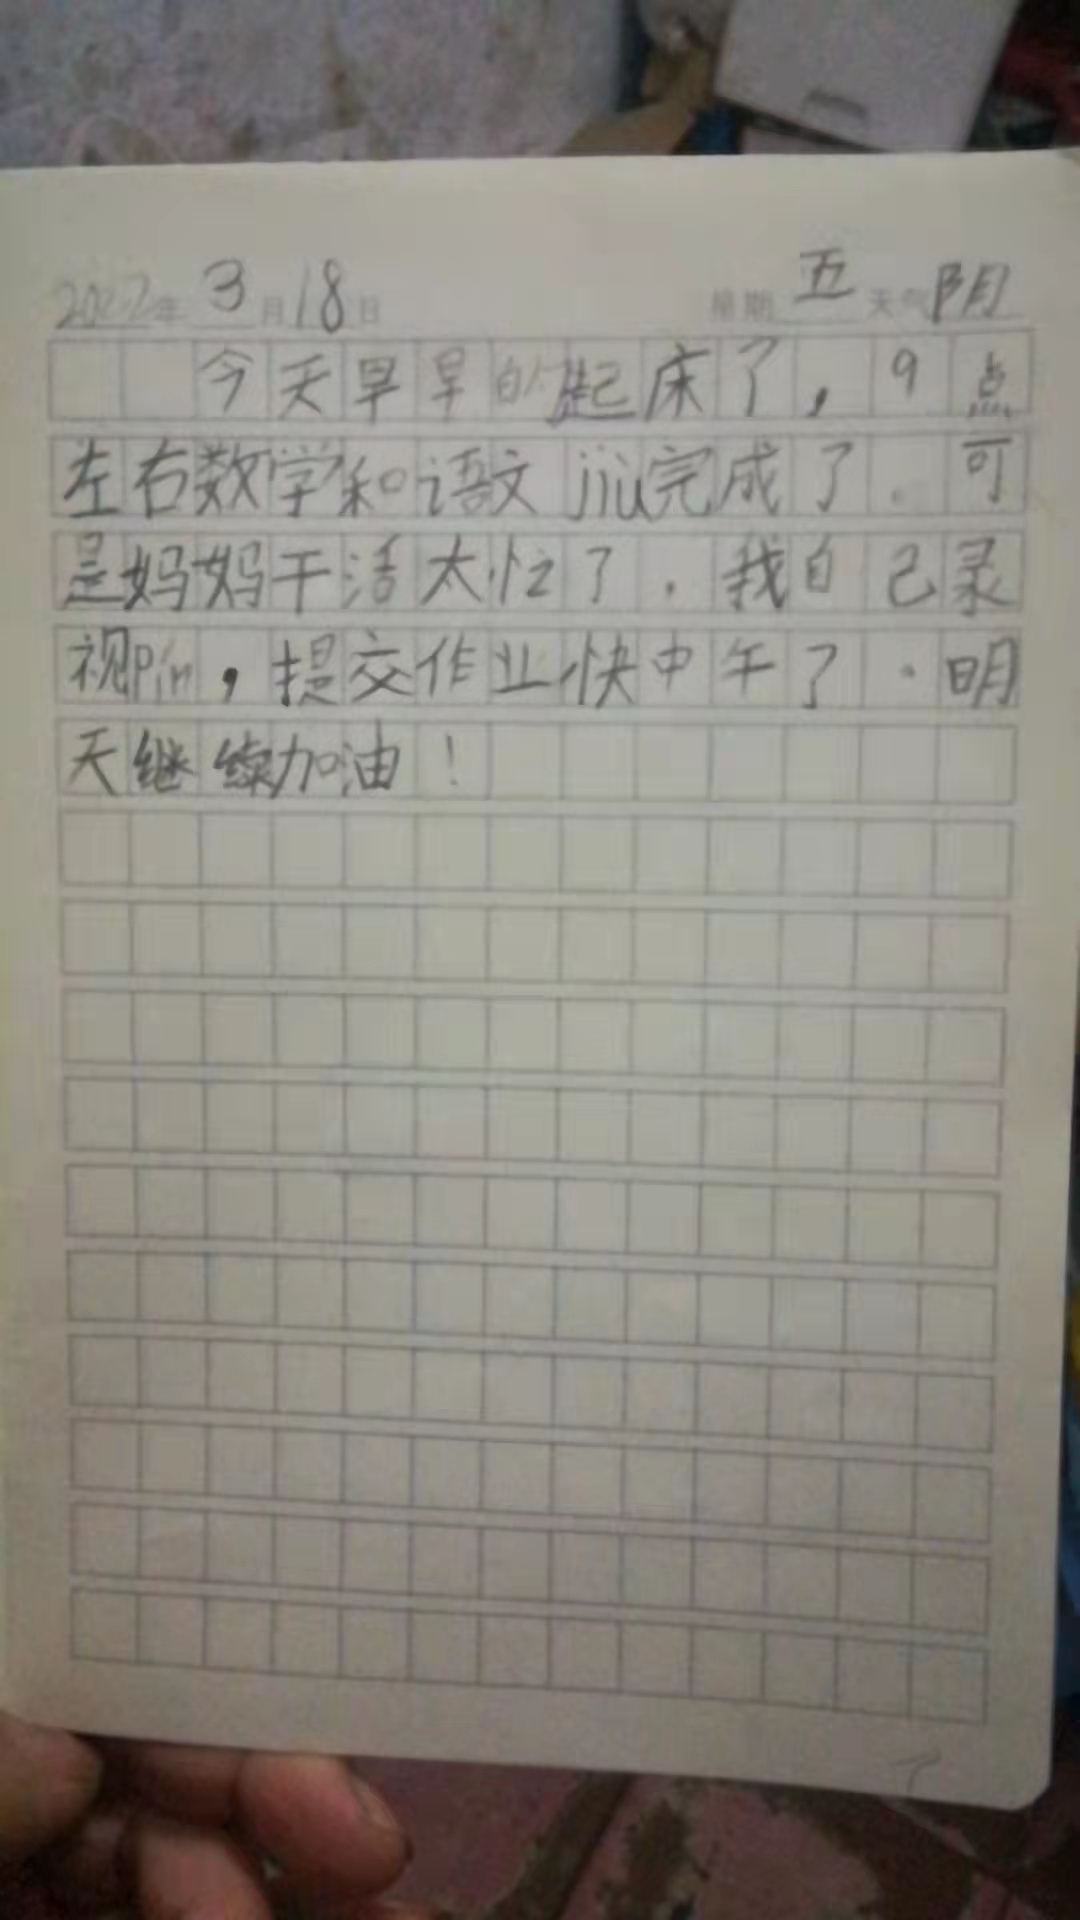 2022年 3月18日 星期五 天气阴
今天早早的起床了，9点
左右数学和语文jiu完成了。可
是妈妈干活太忙了．我自己录
视Pin，提交作业快中午了．明
天继续加油！